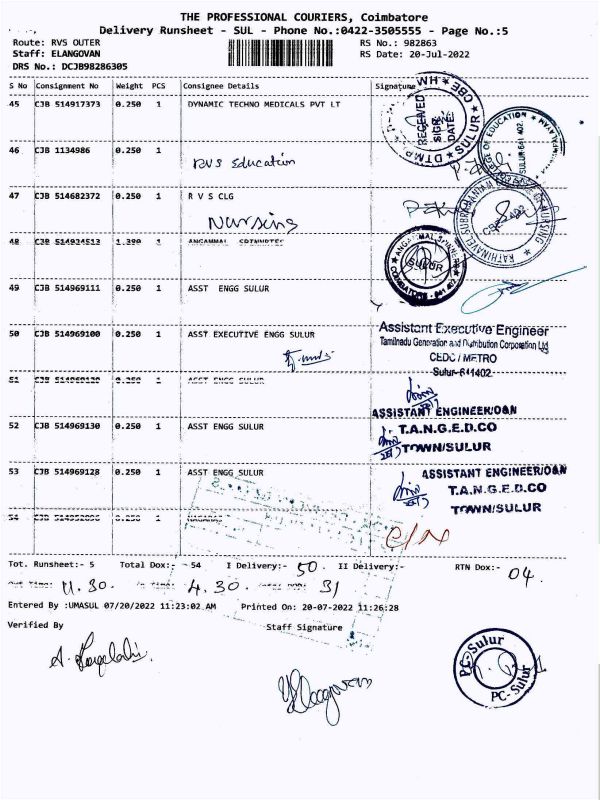 THE PROFESSIONAL COURIERS, Coimbatore
Delivery Runsheet - SUL - Phone No.:0422-3505555 - Page No.:5
Route: RVS OUTER RS No.: 982863
Staff: ELANGOVAN RS Date: 20-Jul-2022
DRS No.: DCJB98286305
S No Consignment No Weight PCS Consignee Details Signature
45 CJB 514917373 0.250 1 DYNAMIC TECHNO MEDICALS PVT LT
RECEIVED
SIGN:
DATE:
SULUR
46 CJB 1134986 0.250 1
RVS Education
SULUR-641 402.
47 CJB 514682372 0.250 1 R V S CLG
Nursing
48 CJB 514934513 1.390 1 ANGAMMAL
ANGAMMAL
SULUR
COIMBATORE - 641 402
49 CJB 514969111 0.250 1 ASST ENGG SULUR
50 CJB 514969100 0.250 1 ASST EXECUTIVE ENGG SULUR
Assistant Executive Engineer
Tamilnadu Generation and Distribution Corporation Ltd
CEDC / METRO
Sulur-641402
51 0.250 1 ASST ENGG SULUR
ASSISTANT ENGINEER/O&N
T.A.N.G.E.D.CO
TOWN/SULUR
52 CJB 514969130 0.250 1 ASST ENGG SULUR
53 CJB 514969128 0.250 1 ASST ENGG SULUR
ASSISTANT ENGINEER/O&N
T.A.N.G.E.D.CO
TOWN/SULUR
54 0.250 1
Tot. Runsheet:- 5 Total Dox:- -54 I Delivery:- 50. II Delivery:- RTN Dox:- 04.
11.30. 4.30. 31
Entered By :UMASUL 07/20/2022 11:23:02 AM Printed On: 20-07-2022 11:26:28
Verified By Staff Signature
PC-Sulur
PC-Sulur